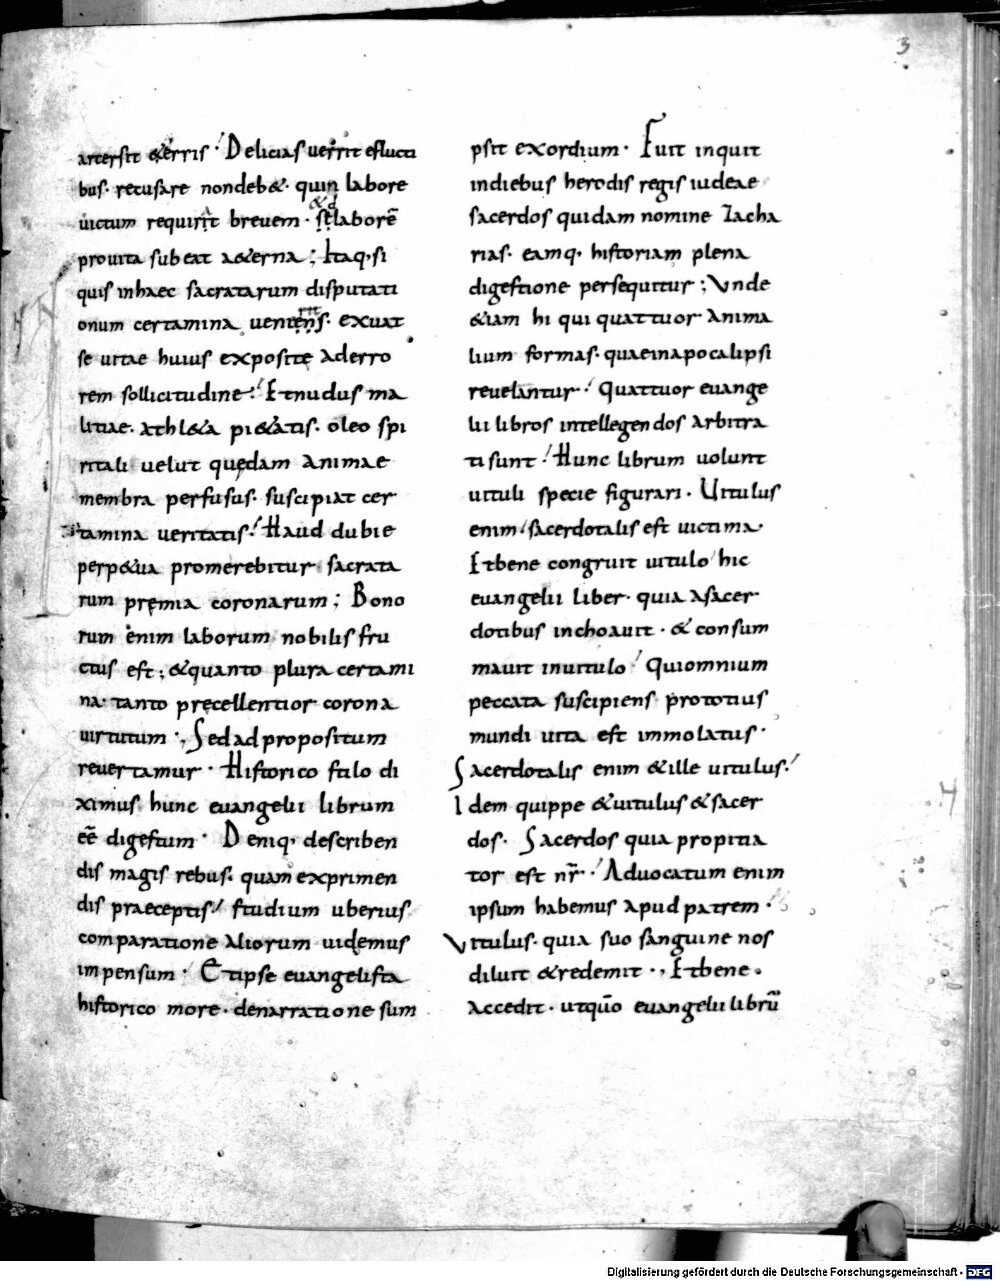 3
arcersit &erris. Delicias uerrit e fluctibus
bus. recusare non deb&. quin labore
uictum requirit breuem. sed laborē
pro uita subeat aeterna; Itaq. si
quis in haec sacratarum disputati
onum certamina ueniens. exuat
se uitae huius exposite ad erro
rem sollicitudine. Et nudus ma
litiae. athl&a pi&atis. oleo spi
ritali uelut quedam animae
membra perfusus. suscipiat cer
tamina ueritatis. Haud dubie
perp&ua promerebitur sacrata
rum premia coronarum; Bono
rum enim laborum nobilis fru
ctus est; & quanto plura certami
na. tanto precellentior corona
uirtutum. Sed ad propositum
reuertamur. Historico stilo di
ximus hunc euangelii librum
eē digestum. Deniq. describen
dis magis rebus. quam exprimen
dis praeceptis studium uberius
comparatione aliorum uidemus
impensum. Et ipse euangelista
historico more. de narratione sum
psit exordium. Fuit inquit
in diebus herodis regis iudeae
sacerdos quidam nomine Zacha
rias. eamq. historiam plena
digestione persequitur; Unde
&iam hi qui quattuor anima
lium formas. quae in apocalipsi
reuelantur. Quattuor euange
lii libros intellegendos arbitra
ti sunt. Hunc librum uolunt
uituli specie figurari. Uitulus
enim sacerdotalis est uictima.
Et bene congruit uitulo hic
euangelii liber. quia a sacer
dotibus inchoauit. & consum
mauit in uitulo Qui omnium
peccata suscipiens pro totius
mundi uita est immolatus.
Sacerdotalis enim & ille uitulus.
Idem quippe & uitulus & sacer
dos. Sacerdos quia propitia
tor est nr̄. Aduocatum enim
ipsum habemus apud patrem.
Vitulus. quia suo sanguine nos
diluit & redemit. Et bene.
accedit. ut quō euangelii librū
Digitalisierung gefördert durch die Deutsche Forschungsgemeinschaft - DFG